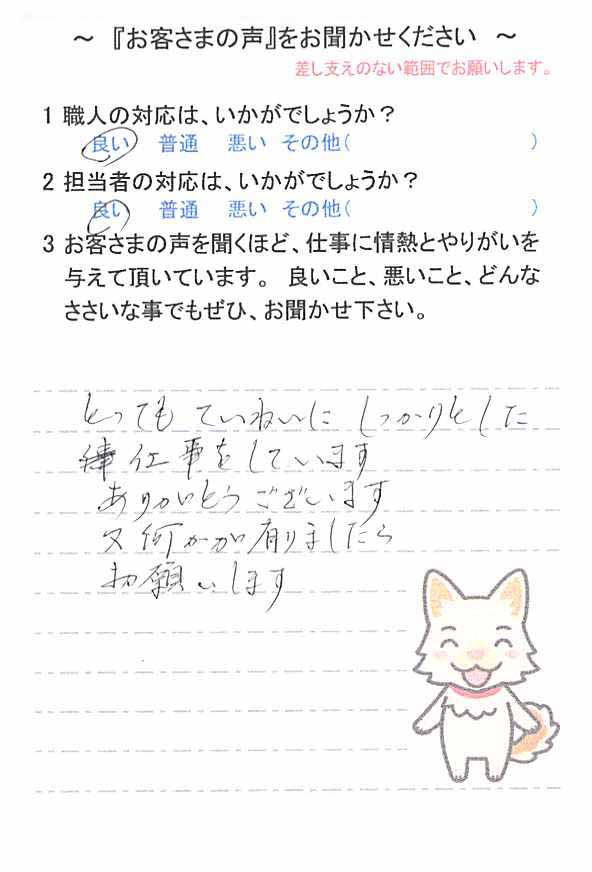 ～ 『お客さまの声』をお聞かせください ～
差し支えのない範囲でお願いします。
1 職人の対応は、いかがでしょうか？
良い 普通 悪い その他（ ）
2 担当者の対応は、いかがでしょうか？
良い 普通 悪い その他（ ）
3 お客さまの声を聞くほど、仕事に情熱とやりがいを
与えて頂いています。 良いこと、悪いこと、どんな
ささいな事でもぜひ、お聞かせ下さい。
とっても ていねいに しっかりとした
仕事をしています
ありがとうございます
又何かが有りましたら
お願いします